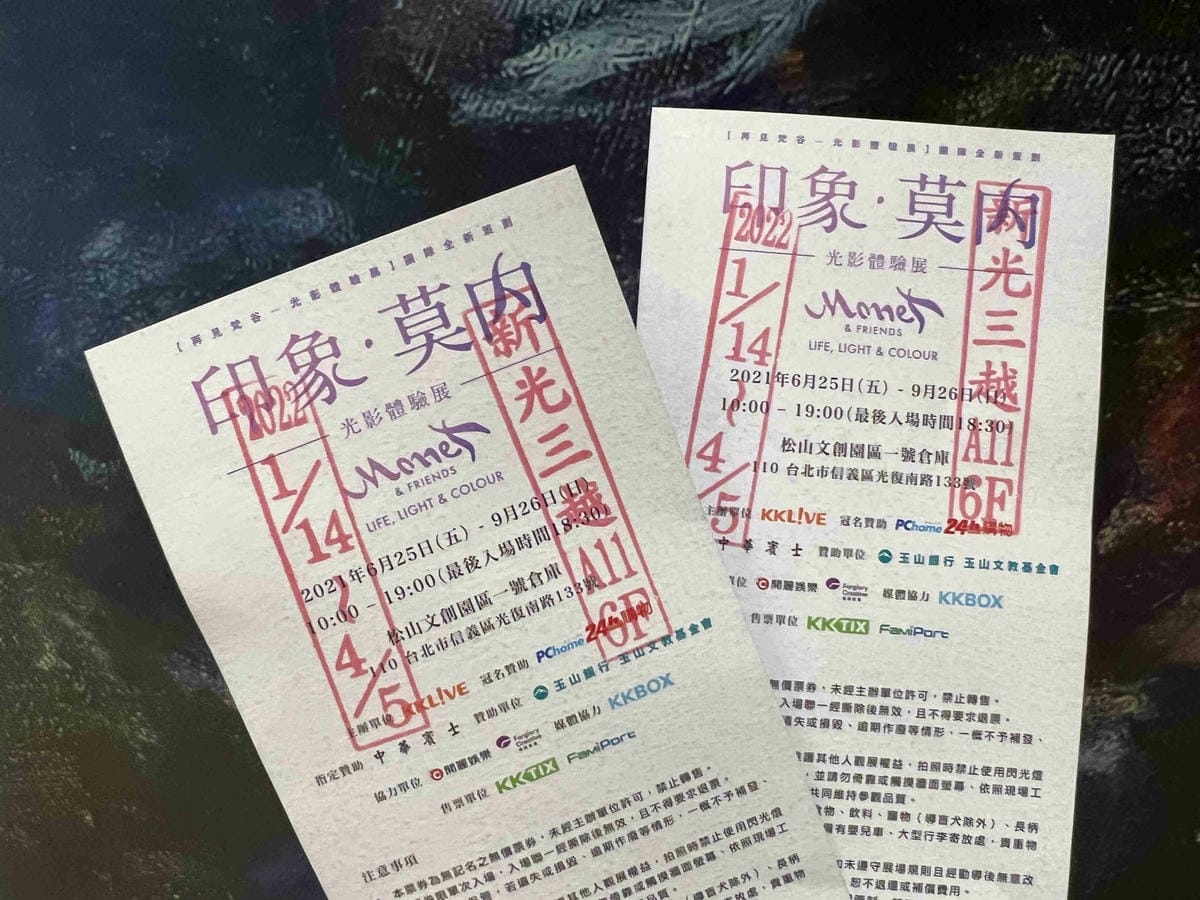 [再見梵谷－光影體驗展]團隊全新策劃
印象·莫內
光影體驗展
Monet
& FRIENDS
LIFE, LIGHT & COLOUR
2021年6月25日(五) - 9月26日(日)
10:00 - 19:00(最後入場時間18:30)
松山文創園區一號倉庫
110 台北市信義區光復南路133號
2022 1/14~4/5
新光三越A11 6F
主辦單位 KKL!VE 冠名贊助 PChome 24h購物
指定贊助 中華賓士 贊助單位 玉山銀行 玉山文教基金會
協力單位 開麗娛樂 Forglory Creative 媒體協力 KKBOX
售票單位 KKTIX FamiPort
注意事項
本票券為無記名之無價票券，未經主辦單位許可，禁止轉售。
券限單次入場，入場聯一經撕除後無效，且不得要求退票。
若遺失或損毀、逾期作廢等情形，一概不予補發、
其他人觀展權益，拍照時禁止使用閃光燈
倚靠或觸摸牆面螢幕、依照現場工
(導盲犬除外)、長柄
寄放處，貴重物
[再見梵谷－光影體驗展]團隊全新策劃
印象·莫內
光影體驗展
Monet
& FRIENDS
LIFE, LIGHT & COLOUR
2021年6月25日(五) - 9月26日(日)
10:00 - 19:00(最後入場時間18:30)
松山文創園區一號倉庫
110 台北市信義區光復南路133號
2022 1/14~4/5
新光三越A11 6F
主辦單位 KKL!VE 冠名贊助 PChome 24h購物
中華賓士 贊助單位 玉山銀行 玉山文教基金會
單位 開麗娛樂 Forglory Creative 媒體協力 KKBOX
售票單位 KKTIX FamiPort
無價票券，未經主辦單位許可，禁止轉售。
入場聯一經撕除後無效，且不得要求退票。
遺失或損毀、逾期作廢等情形，一概不予補發、
護其他人觀展權益，拍照時禁止使用閃光燈
，並請勿倚靠或觸摸牆面螢幕、依照現場工
共同維持參觀品質。
食物、飲料、寵物(導盲犬除外)、長柄
備有嬰兒車、大型行李寄放處，貴重物
如未遵守展場規則且經勸導後無意改
恕不退還或補償費用。